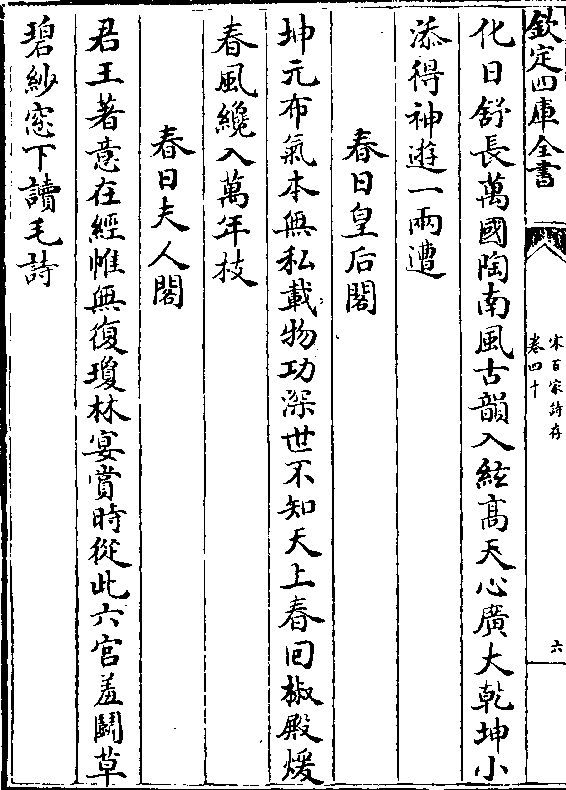 欽定四庫全書
宋百家詩存
卷四十
六
化日舒長萬國陶南風古韻入絃髙天心廣大乾坤小
添得神遊一兩遭
春日皇后閣
坤元布氣本無私載物功深世不知天上春回椒殿煖
春風纔入萬年枝
春日夫人閣
君王著意在經帷無復瓊林宴賞時從此六宫羞鬭草
碧紗窓下讀毛詩